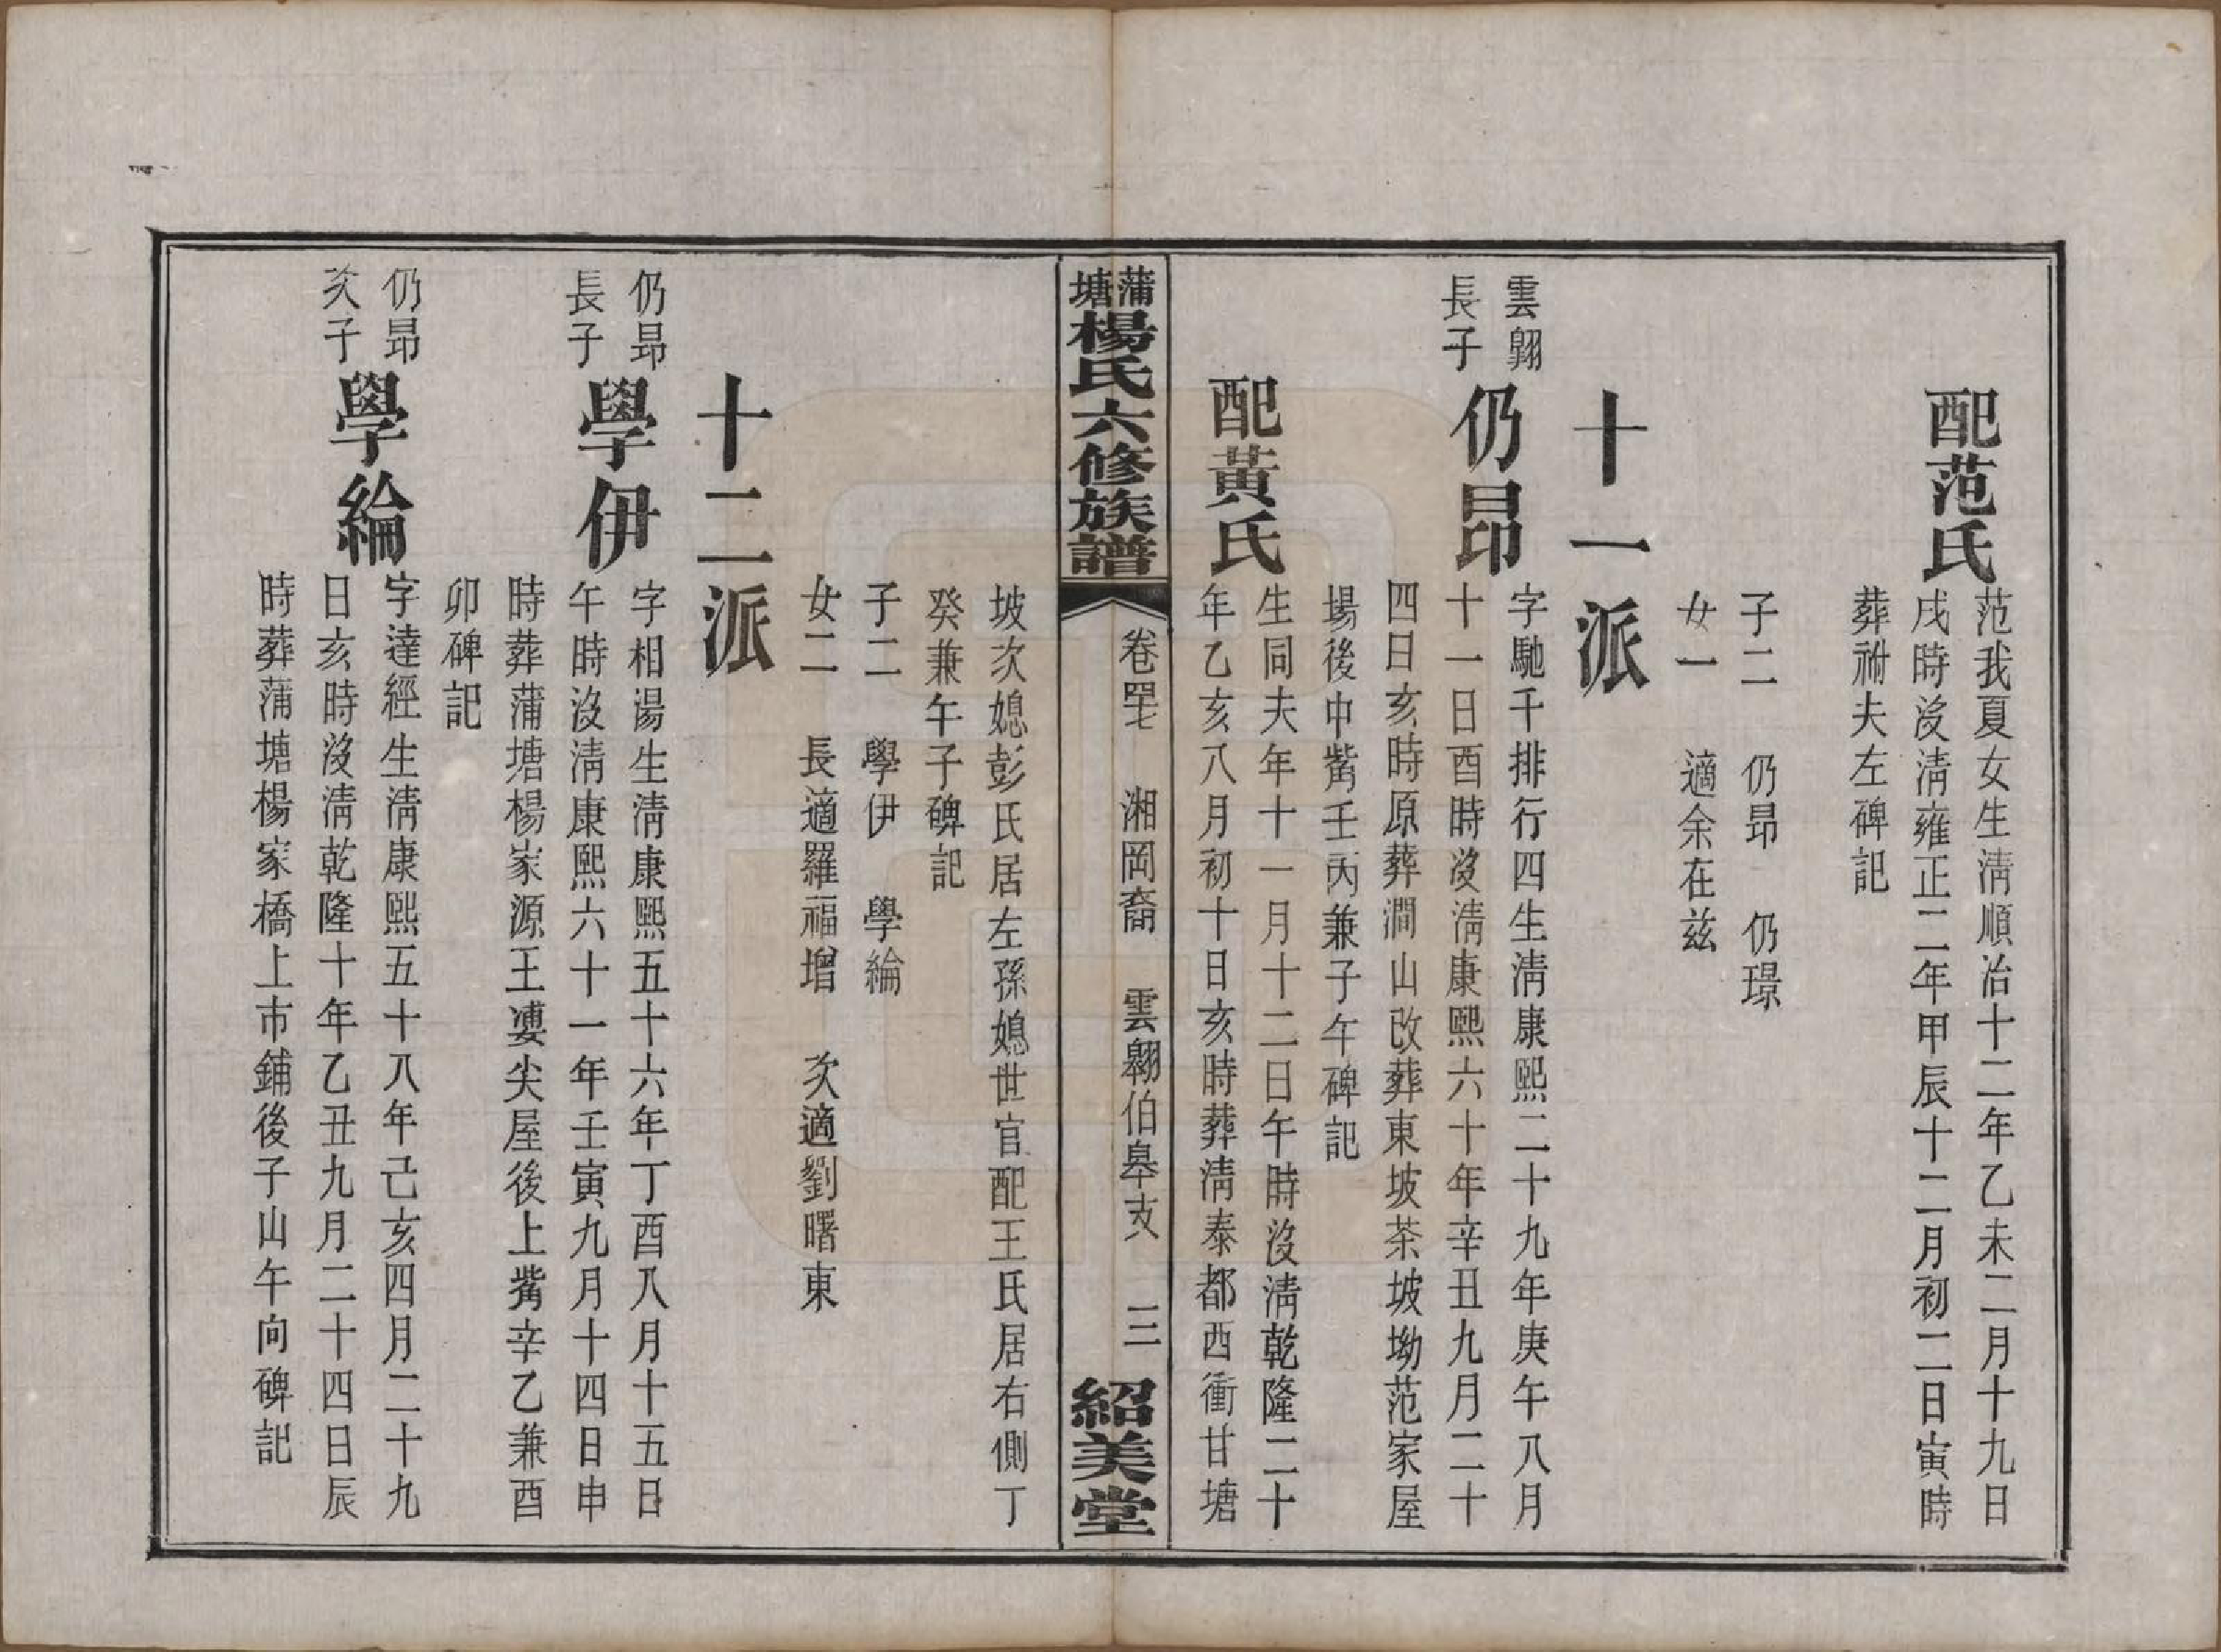 配范氏
范我夏女生清順治十二年乙未二月十九日
戌時沒清雍正二年甲辰十二月初二日寅時
葬祔夫左碑記
子二　仍昂　仍璟
女一　適余在茲
十一派
雲翶
長子
仍昂
字馳千排行四生清康熙二十九年庚午八月
十一日酉時沒清康熙六十年辛丑九月二十
四日亥時原葬澗山改葬東坡茶坡坳范家屋
場後中觜壬丙兼子午碑記
配黃氏
生同夫年十一月十二日午時沒清乾隆二十
年乙亥八月初十日亥時葬清泰都西衝甘塘
蒲塘楊氏六修族譜
卷四七　湘岡裔　雲翱伯皋支　三
紹美堂
坡次媳彭氏居左孫媳世官配王氏居右側丁
癸兼午子碑記
子二　學伊　學綸
女二　長適羅福增　次適劉曙東
十二派
仍昂
長子
學伊
字相湯生清康熙五十六年丁酉八月十五日
午時沒清康熙六十一年壬寅九月十四日申
時葬蒲塘楊家源王婆尖屋後上觜辛乙兼酉
卯碑記
仍昂
次子
學綸
字達經生清康熙五十八年己亥四月二十九
日亥時沒清乾隆十年乙丑九月二十四日辰
時葬蒲塘楊家橋上市鋪後子山午向碑記